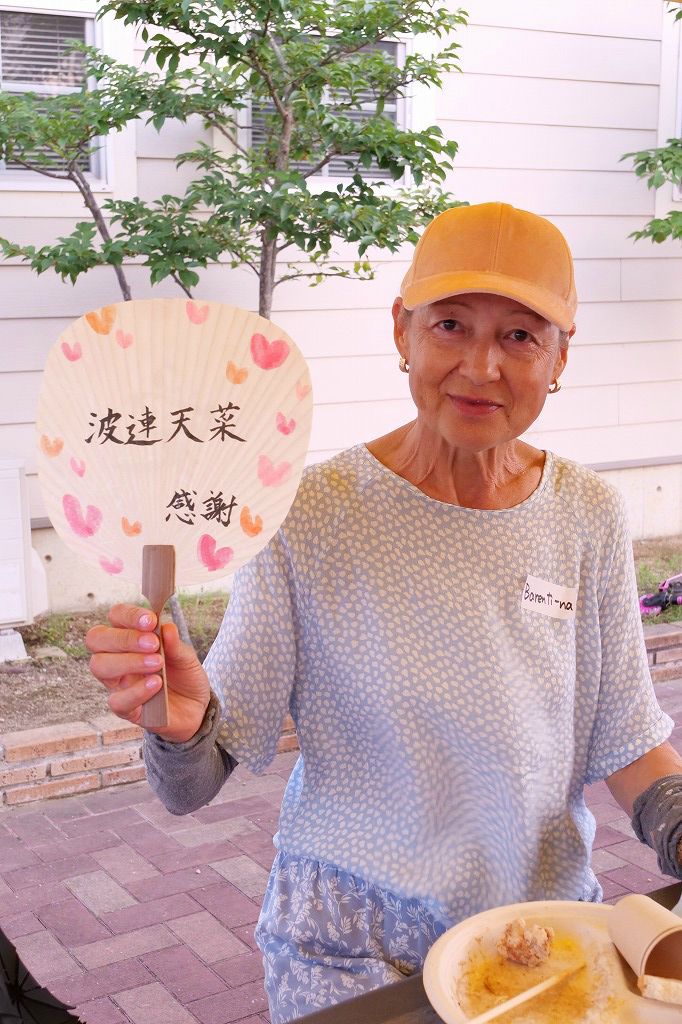 波連天菜
感謝
Barenti-na